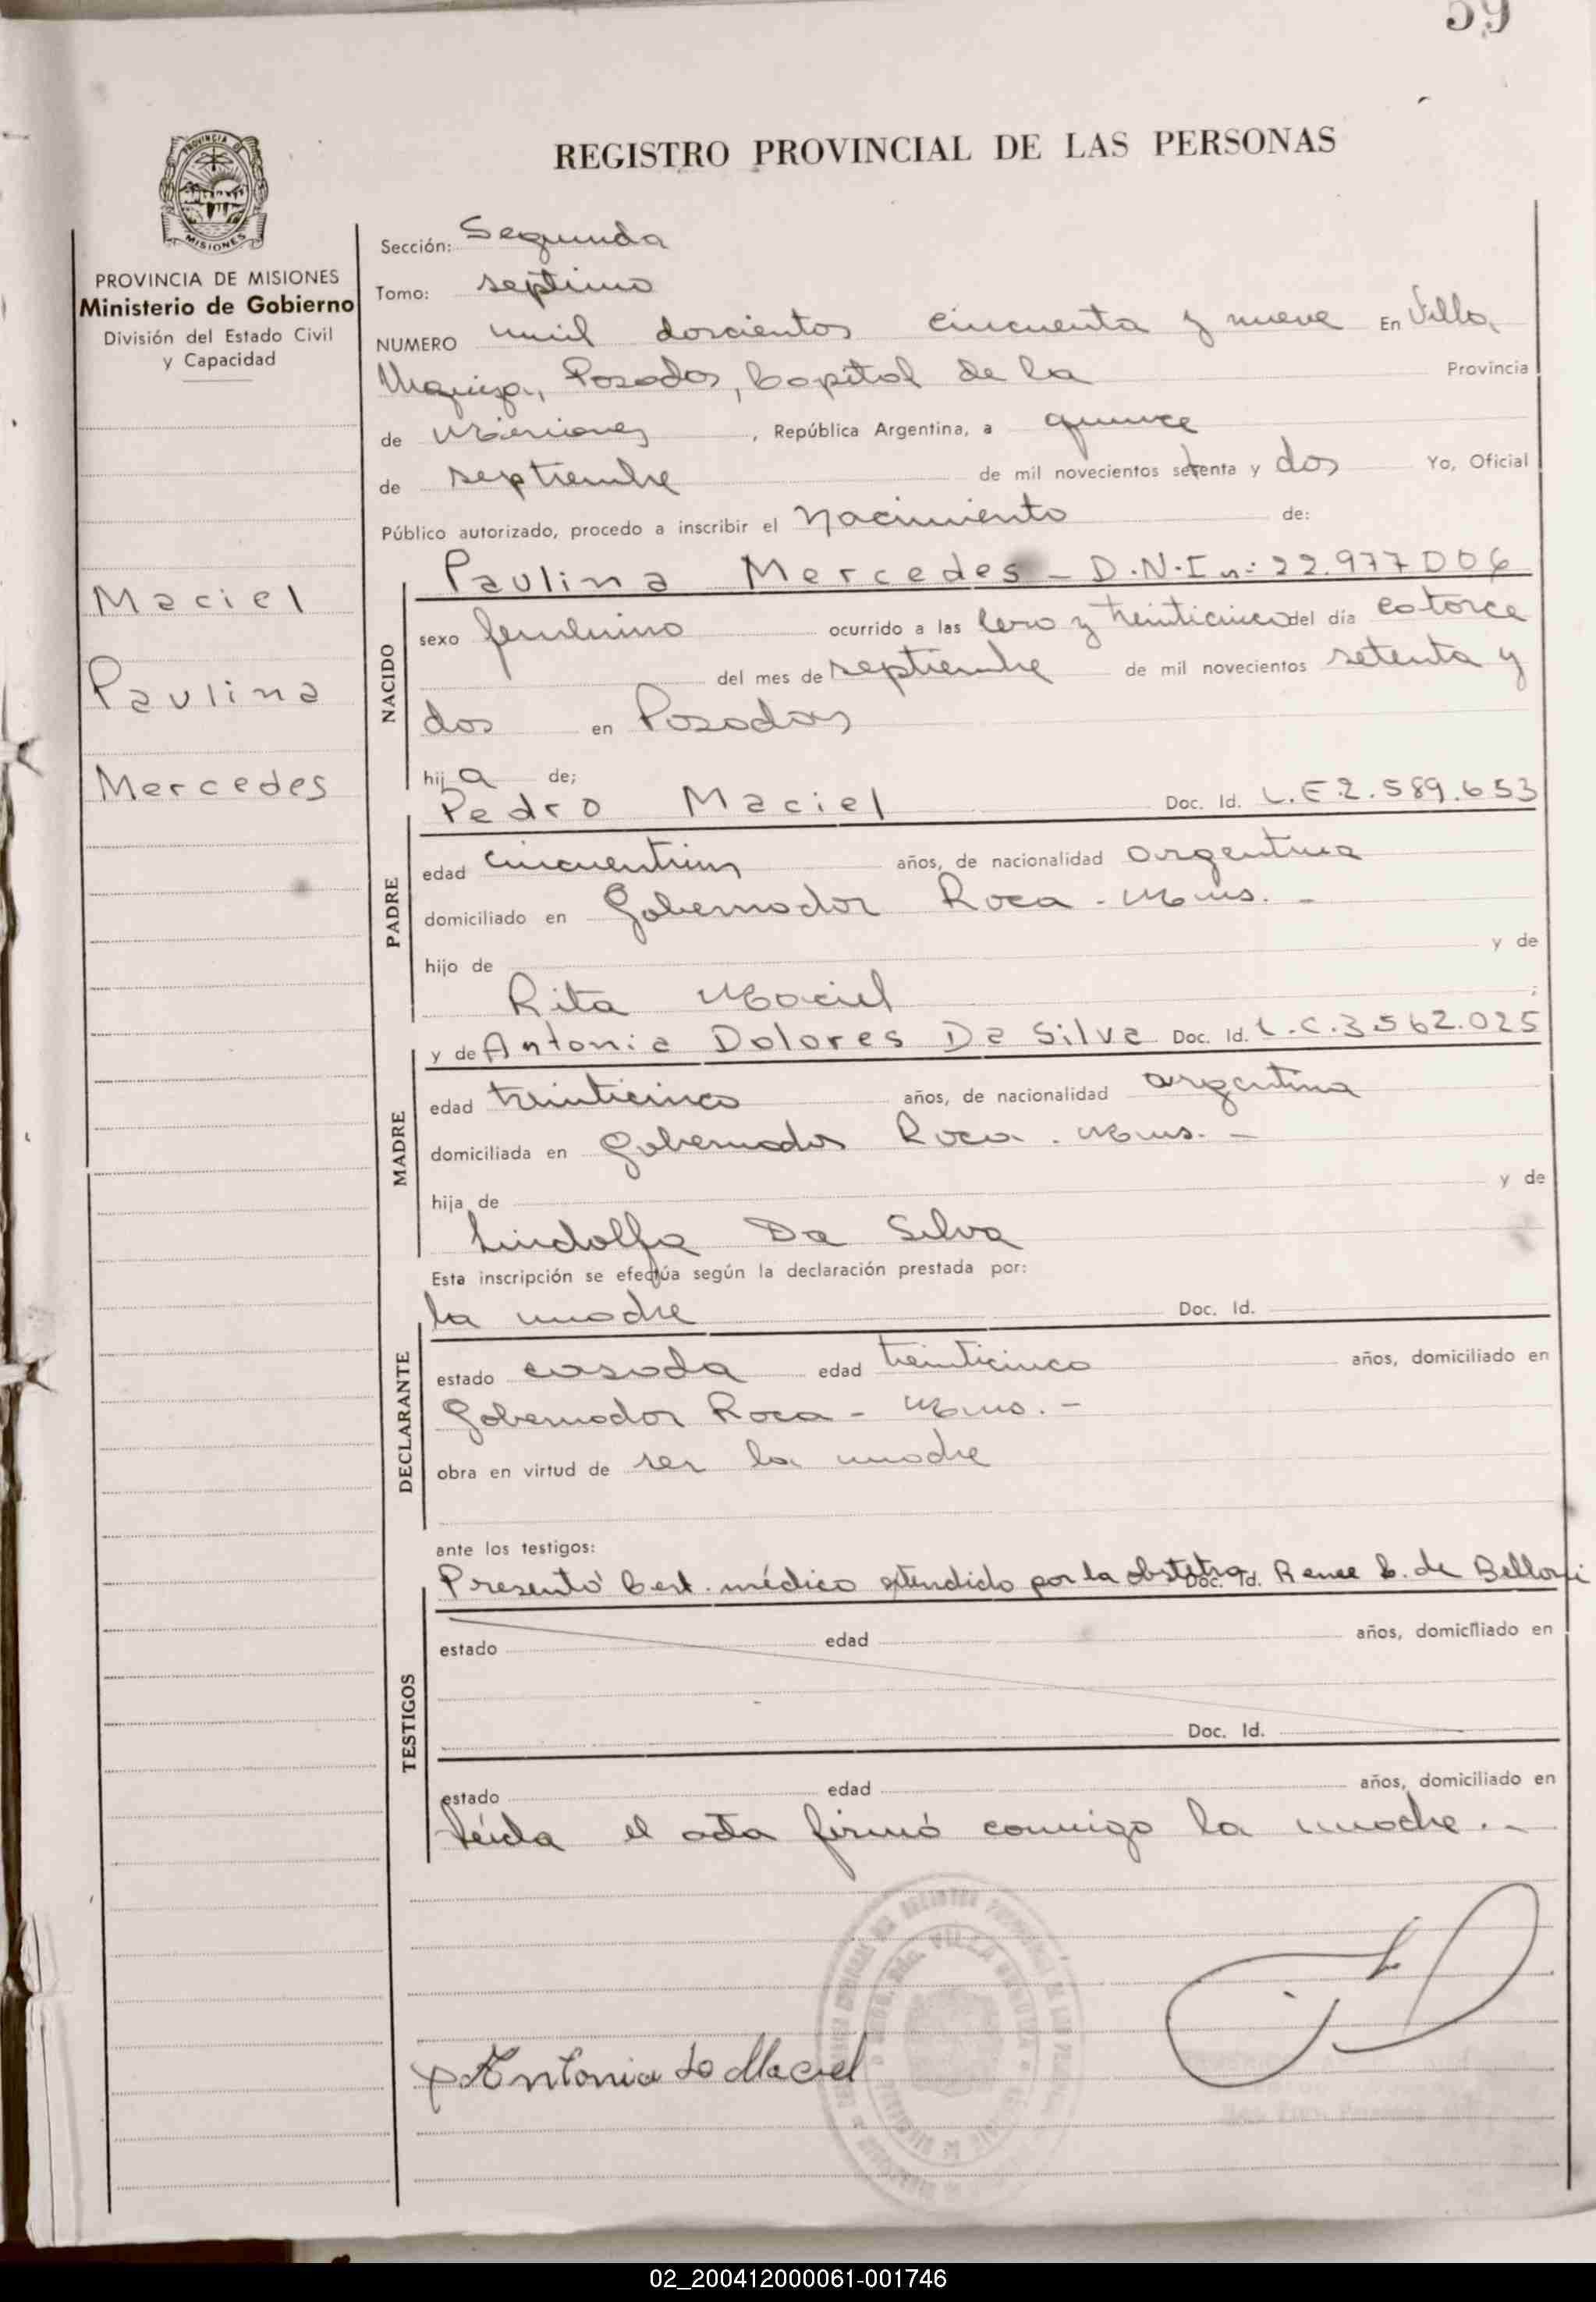 59
REGISTRO PROVINCIAL DE LAS PERSONAS
MISIONES
PROVINCIA DE MISIONES
Ministerio de Gobierno
División del Estado Civil
y Capacidad
Maciel
Paulina
Mercedes
Sección: Segunda
Tomo: septimo
NUMERO mil doscientos cincuenta y nueve En Villa
Urquiza, Posadas, Capital de la Provincia
de Misiones, República Argentina, a quince
de septiembre de mil novecientos setenta y dos Yo, Oficial
Público autorizado, procedo a inscribir el Nacimiento de:
NACIDO
Paulina Mercedes - D.N.I n: 22.977006
sexo femenino ocurrido a las cero y treinticinco del día catorce
del mes de septiembre de mil novecientos setenta y
dos en Posadas
hija de;
PADRE
Pedro Maciel Doc. Id. L.E.2.589.653
edad cincuentiun años, de nacionalidad argentina
domiciliado en Gobernador Roca - Mnes. -
hijo de y de
Rita Maciel ;
MADRE
y de Antonia Dolores Da Silva Doc. Id. L.C.3.562.025
edad treinticinco años, de nacionalidad argentina
domiciliada en Gobernador Roca. Mnes. -
hija de y de
Lindolfa Da Silva
Esta inscripción se efectúa según la declaración prestada por:
DECLARANTE
la madre Doc. Id.
estado casada edad treinticinco años, domiciliado en
Gobernador Roca - Mnes. -
obra en virtud de ser la madre
ante los testigos:
TESTIGOS
Presentó Cert. médico extendido por la obstetra Doc. Id. Renee B. de Belloni
estado edad años, domiciliado en
Doc. Id.
estado edad años, domiciliado en
Leída el acta firmó conmigo la madre. -
Antonia de Maciel
02_200412000061-001746